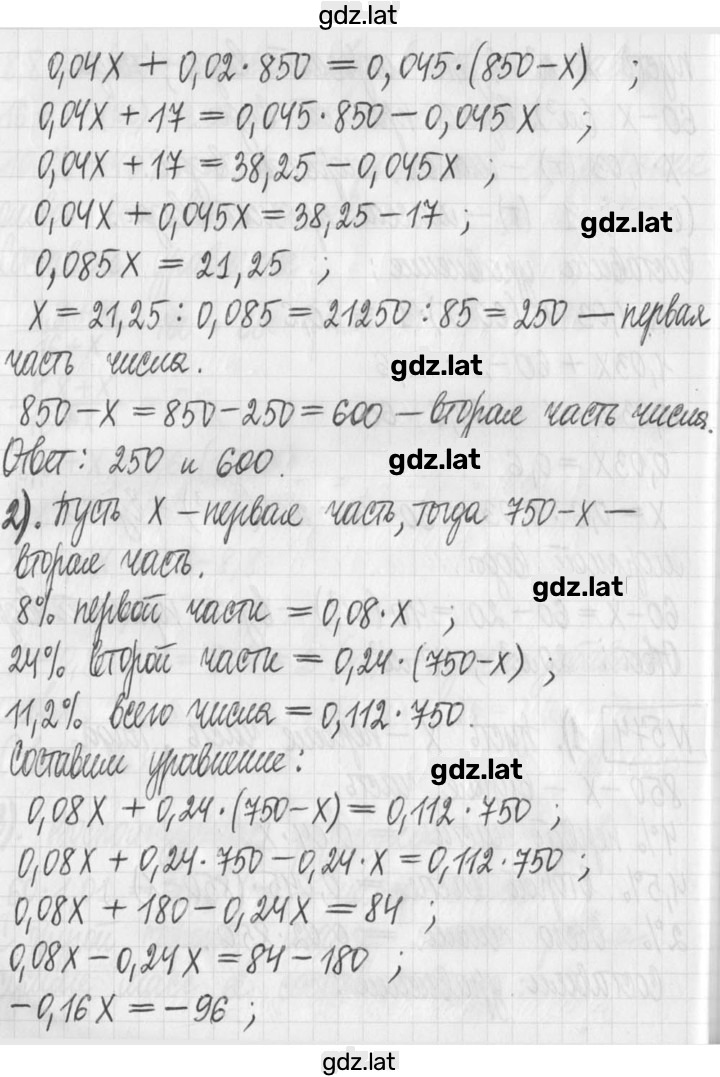 gdz.lat
0,04x + 0,02·850 = 0,045·(850-x) ;
0,04x + 17 = 0,045·850 - 0,045x ;
0,04x + 17 = 38,25 - 0,045x ;
0,04x + 0,045x = 38,25 - 17 ;
gdz.lat
0,085x = 21,25 ;
x = 21,25 : 0,085 = 21250 : 85 = 250 — первая
часть числа.
gdz.lat
850-x = 850-250 = 600 — вторая часть числа.
Ответ: 250 и 600.
gdz.lat
2). Пусть x - первая часть, тогда 750-x —
вторая часть.
gdz.lat
8% первой части = 0,08·x ;
24% второй части = 0,24·(750-x) ;
11,2% всего числа = 0,112·750.
Составим уравнение:
gdz.lat
0,08x + 0,24·(750-x) = 0,112·750 ;
0,08x + 0,24·750 - 0,24·x = 0,112·750 ;
0,08x + 180 - 0,24x = 84 ;
0,08x - 0,24x = 84 - 180 ;
-0,16x = -96 ;
gdz.lat